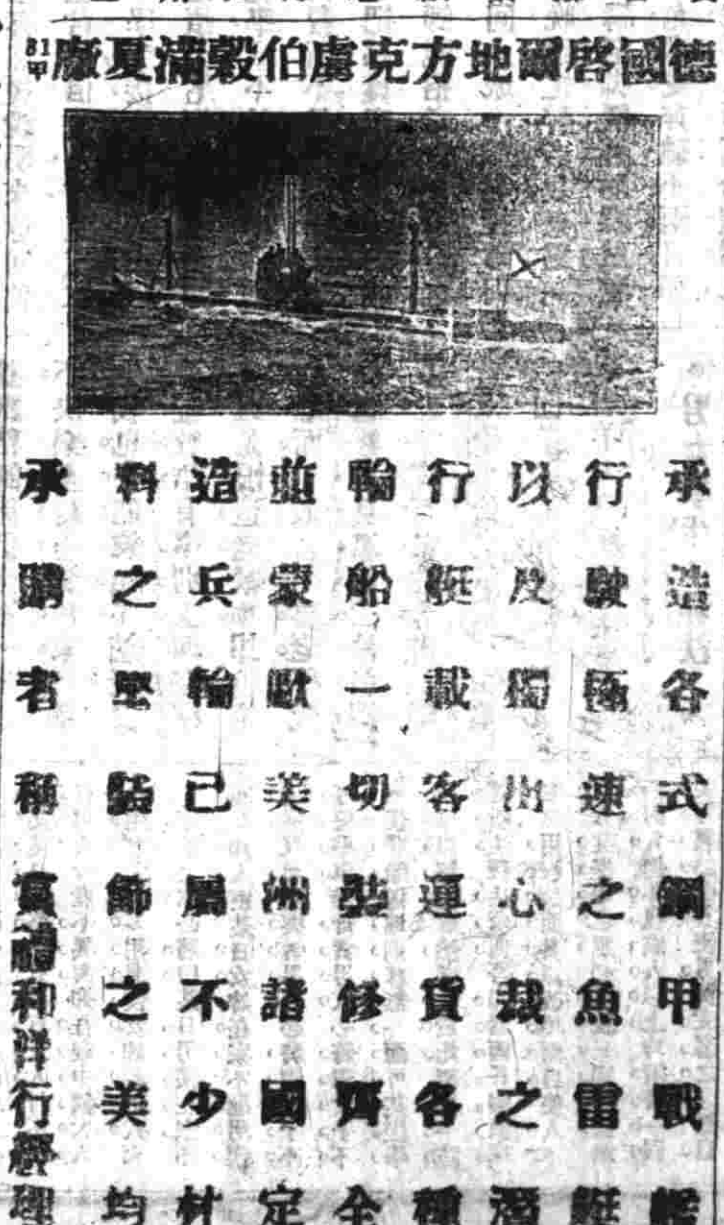 德國啓爾地方克虜伯穀滿夏廠
81甲
承造各式鋼甲戰艦
行駛極速之魚雷艇
以及獨出心裁之潛
行艇載客運貨各種
輪船一切裝修齊全
並蒙歐美洲諸國定
造兵輪已屬不少材
料之堅飾之美均
承購者稱賞禮和洋行經理